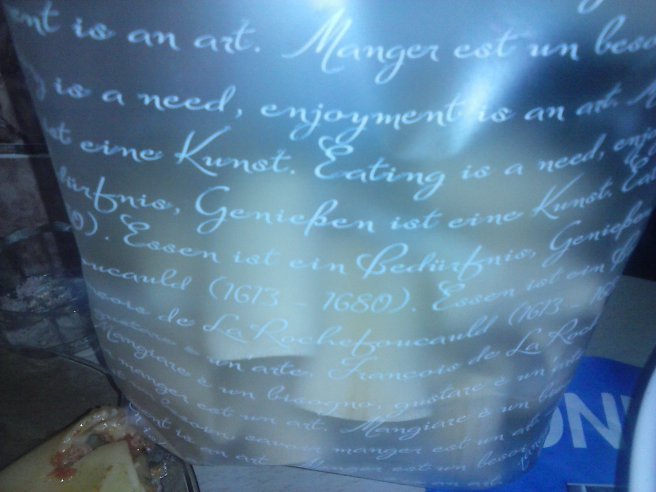 ent is an art. Manger est un beso
is a need, enjoyment is an art. M
st eine Kunst. Eating is a need, enjo
edürfnis, Genießen ist eine Kunst. Eat
0). Essen ist ein Bedürfnis, Genieße
oucauld (1613 – 1680). Essen ist ein B
çois de La Rochefoucauld (1613 – 16
gustare è un arte. François de La Roch
Mangiare è un bisogno, gustare è un
manger est un art. Mangiare è un
savoir manger est un art.
is an art. Manger est un besoin
is an art.
ON